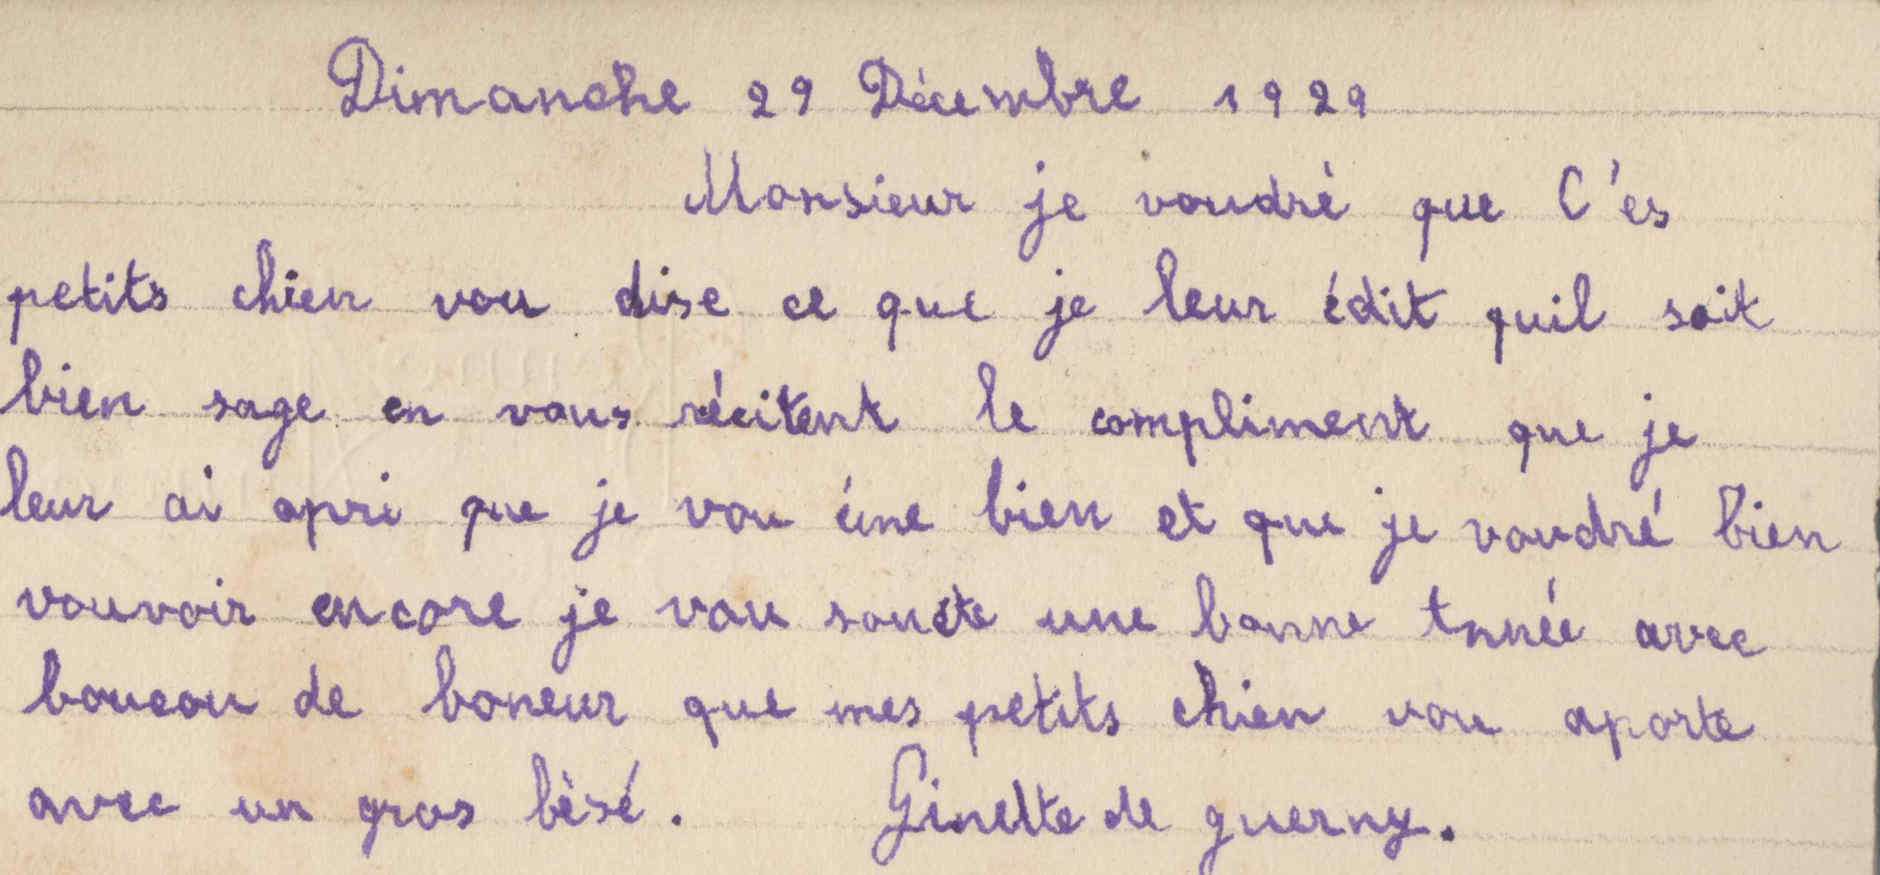 Dimanche 29 Décembre 1929
Monsieur je voudré que C'es
petits chien vou dise ce que je leur édit quil soit
bien sage en vous récitent le compliment que je
leur ai apri que je vou éme bien et que je voudré bien
vouvoir encore je vou souete une bonne Année avec
boucou de boneur que mes petits chien vou aporte
avec un gros bèsé. Ginette de guerny.